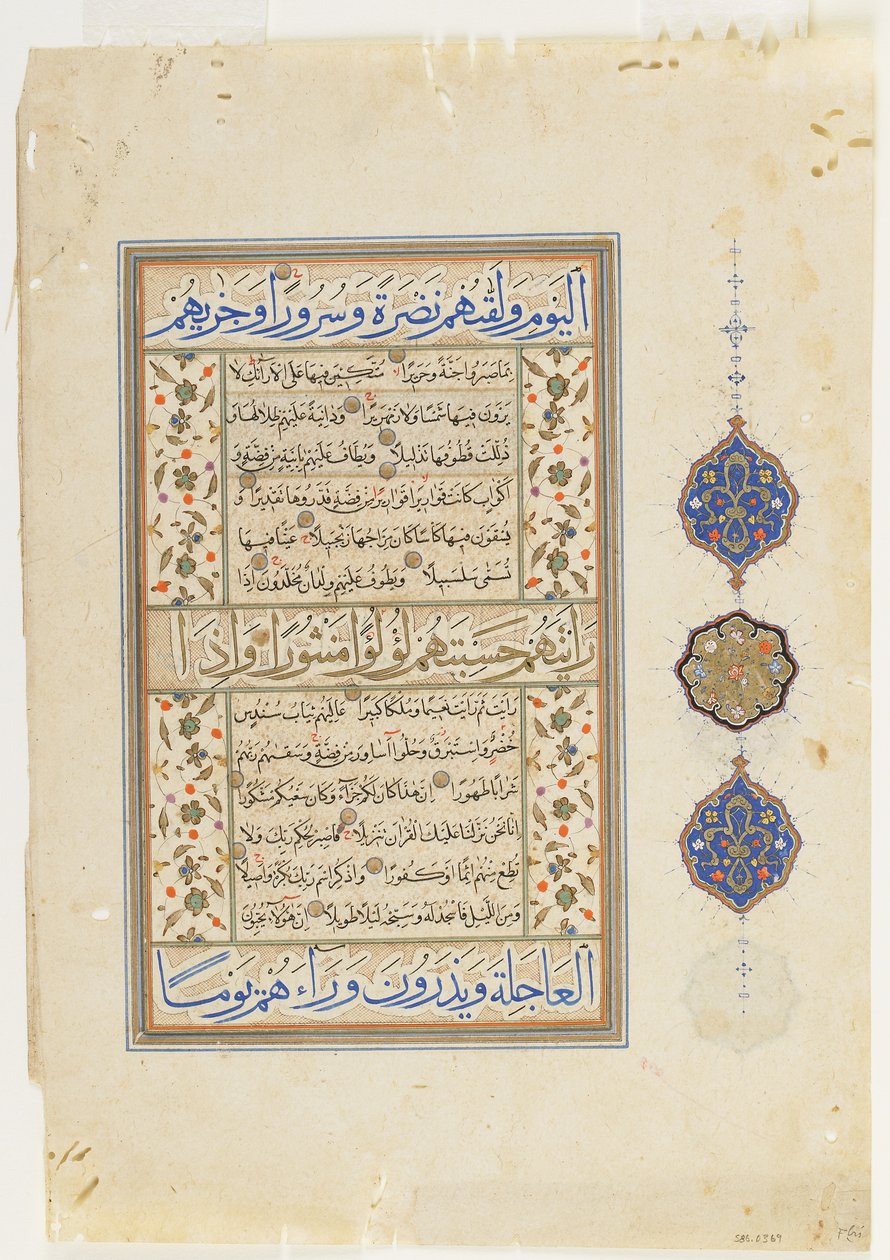 اَلْيَوْمِ وَلَقّٰيهُمْ نَضْرَةً وَسُرُورًا وَجَزٰيهُمْ
بِمَا صَبَرُوا جَنَّةً وَحَرِيرًا مُتَّكِئِينَ فِيهَا عَلَى الْاَرَائِكِ لَا
يَرَوْنَ فِيهَا شَمْسًا وَلَا زَمْهَرِيرًا وَدَانِيَةً عَلَيْهِمْ ظِلَالُهَا وَ
ذُلِّلَتْ قُطُوفُهَا تَذْلِيلًا وَيُطَافُ عَلَيْهِمْ بِاٰنِيَةٍ مِنْ فِضَّةٍ وَ
اَكْوَابٍ كَانَتْ قَوَارِيرَا قَوَارِيرَا مِنْ فِضَّةٍ قَدَّرُوهَا تَقْدِيرًا وَ
يُسْقَوْنَ فِيهَا كَأْسًا كَانَ مِزَاجُهَا زَنْجَبِيلًا عَيْنًا فِيهَا
تُسَمّٰى سَلْسَبِيلًا وَيَطُوفُ عَلَيْهِمْ وِلْدَانٌ مُخَلَّدُونَ اِذَا
رَاَيْتَهُمْ حَسِبْتَهُمْ لُؤْلُؤًا مَنْثُورًا وَاِذَا
رَاَيْتَ ثَمَّ رَاَيْتَ نَعِيمًا وَمُلْكًا كَبِيرًا عَالِيَهُمْ ثِيَابُ سُنْدُسٍ
خُضْرٌ وَاِسْتَبْرَقٌ وَحُلُّوا اَسَاوِرَ مِنْ فِضَّةٍ وَسَقٰيهُمْ رَبُّهُمْ
شَرَابًا طَهُورًا اِنَّ هٰذَا كَانَ لَكُمْ جَزَاءً وَكَانَ سَعْيُكُمْ مَشْكُورًا
اِنَّا نَحْنُ نَزَّلْنَا عَلَيْكَ الْقُرْاٰنَ تَنْزِيلًا فَاصْبِرْ لِحُكْمِ رَبِّكَ وَلَا
تُطِعْ مِنْهُمْ اٰثِمًا اَوْ كَفُورًا وَاذْكُرِ اسْمَ رَبِّكَ بُكْرَةً وَاَصِيلًا
وَمِنَ اللَّيْلِ فَاسْجُدْ لَهُ وَسَبِّحْهُ لَيْلًا طَوِيلًا اِنَّ هٰؤُلَاءِ يُحِبُّونَ
الْعَاجِلَةَ وَيَذَرُونَ وَرَاءَهُمْ يَوْمًا
S86.0369